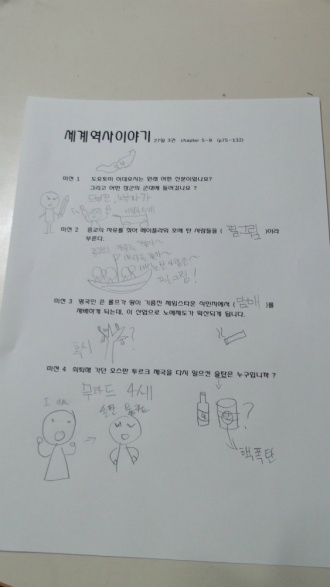 세계역사이야기 27일 3권 chapter 5-8 (p75-133)
미션 1 도요토미 히데요시는 원래 어떤 신분이었나요?
그리고 어떤 장군의 군대에 들어갔나요 ?
미션 2 종교의 자유를 찾아 메이플라워 호에 탄 사람들을 ( 필그림 )이라
부른다.
필그림!
미션 3 영국인 존 롤프가 땅이 기름진 제임스타운 식민지에서 ( 담배 )를
재배하게 되는데, 이 산업으로 노예제도가 확산되게 됩니다.
혹시
?
미션 4 쇠퇴해 가던 오스만 투르크 제국을 다시 일으킨 술탄은 누구입니까 ?
무라드 4세
?
핵폭탄